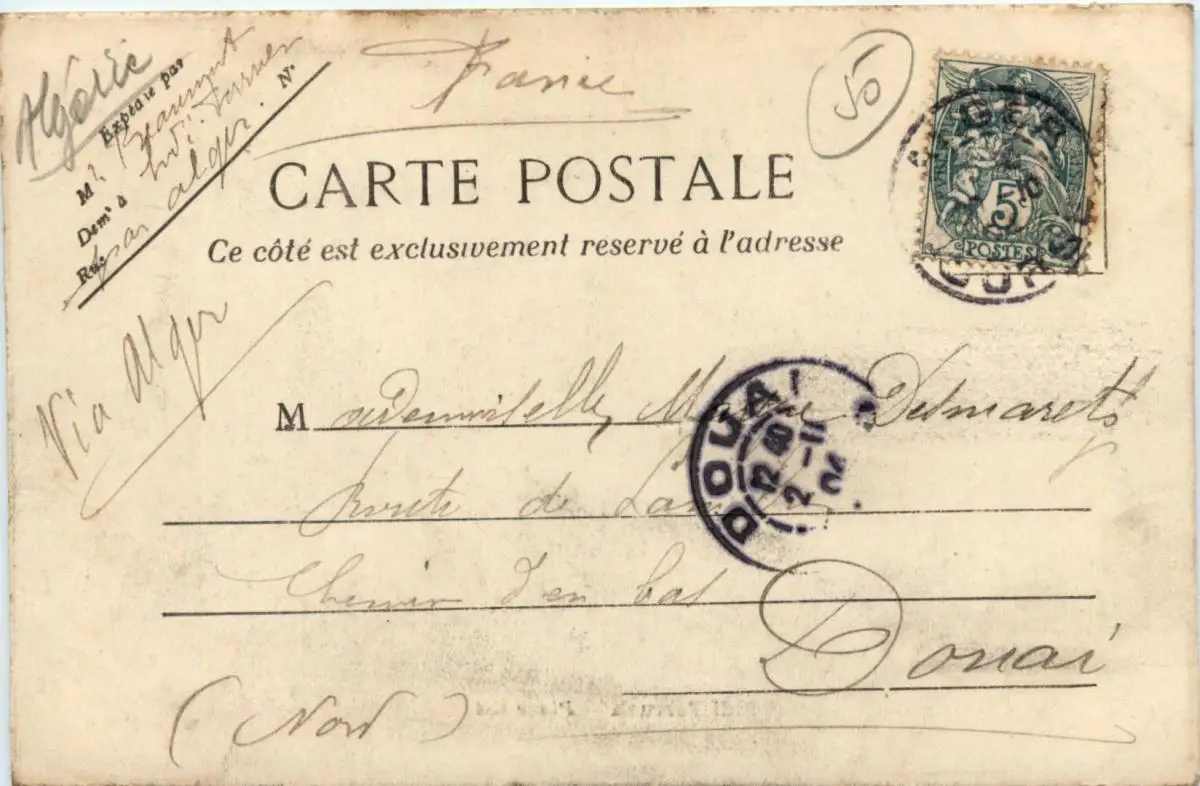 Algérie
Expédié par
N°
Mr Beaumont
Demt à Sidi-Ferruch
Rue par alger
France
50
CARTE POSTALE
Ce côté est exclusivement reservé à l'adresse
ALGER
5
POSTES
Via Alger
Mademoiselle Desmarets
Route de
Chemin d'en bas
Douai
(Nord)
DOUAI
12 40
2 -11
04